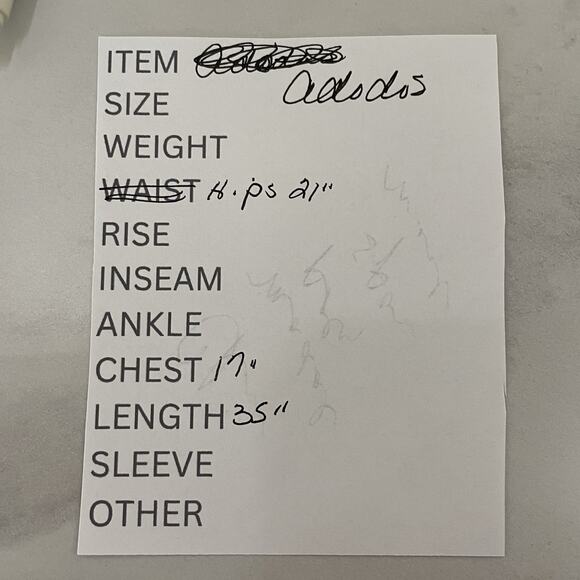 ITEM
Adodos
SIZE
WEIGHT
WAIST Hips 21"
RISE
INSEAM
ANKLE
CHEST 17"
LENGTH 35"
SLEEVE
OTHER